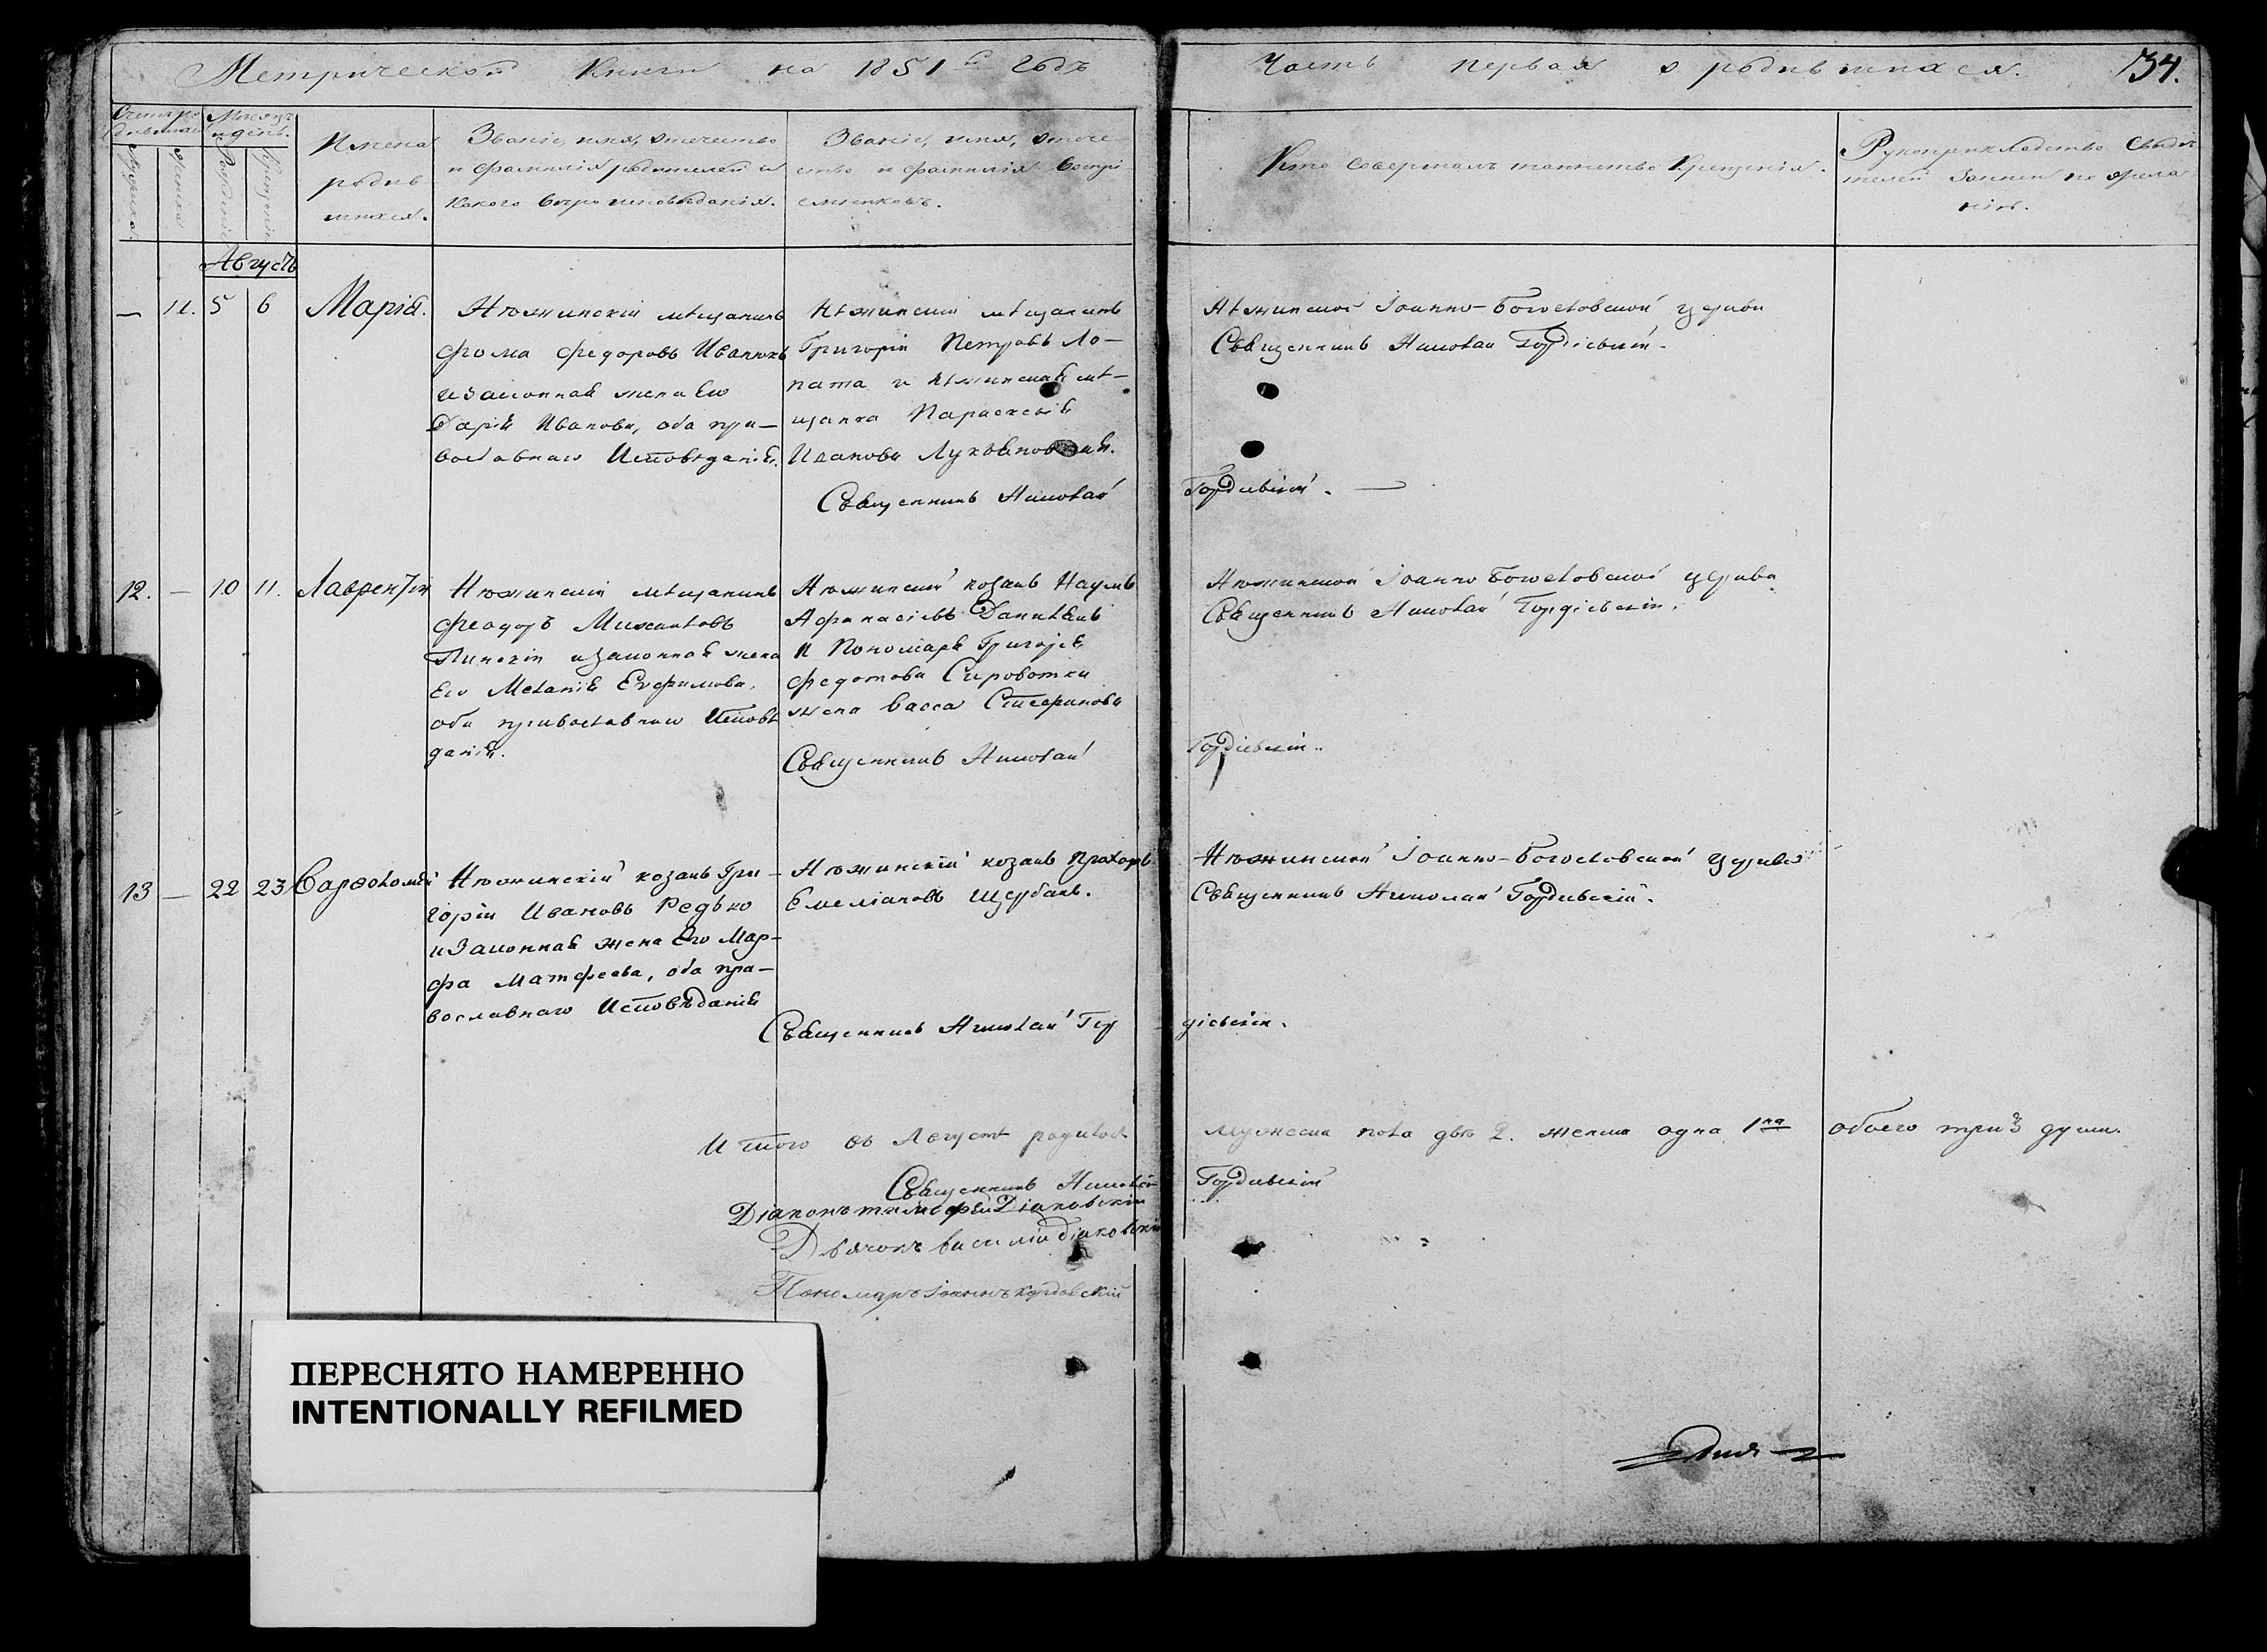 Метрической Книги на 1851й годъ
Часть первая о родившихся. 734.
Счетъ родившихся
Мѣсяцъ и день.
Мужеска
Женска
Рожденія
Крещенія
Имена
родив-
шихся.
Званіе, имя, отчество
и фамилія родителей и
какого вѣроисповѣданія.
Званіе, имя, отче-
ство и фамилія воспрі-
емниковъ.
Кто совершалъ таинство Крещенія.
Рукоприкладство свидѣ-
телей записи по жела-
нію.
Августъ
— 11. 5 6 Марія.
Нѣжинскій мѣщанинъ
Фома Федоровъ
и законная жена Его
Дарія Иванова, оба пра-
вославнаго Исповѣданія.
Нѣжинскій мѣщанинъ
Григорій Петровъ Ло-
пата и Нѣжинская мѣ-
щанка Параскевія
Иванова
Священникъ Николай
Нѣжинской Іоанно-Богословской церкви
Священникъ Николай Гордіевскій.
Гордіевскій.
12. — 10 11. Лаврентій
Нѣжинскій мѣщанинъ
Феодоръ Михаиловъ
и законная жена
Его Меланія Евфимова,
оба православнаго Исповѣ
данія.
Нѣжинскій козакъ Наумъ
Афанасіевъ
и Пономаря Григорія
Федотова Сыроватки
жена Васса
Священникъ Николай
Нѣжинской Іоанно Богословской церкви
Священникъ Николай Гордіевскій.
Гордіевскій.
13 — 22 23 Варѳоломѣй
Нѣжинскій козакъ Гри-
горій Ивановъ Редько
и Законная жена Его Мар-
фа Матфеева, оба пра-
вославнаго Исповѣданія
Нѣжинскій козакъ Прохоръ
Емеліановъ Щербакъ.
Священникъ Николай Гор
діевскій.
Нѣжинской Іоанно-Богословской церкви
Священникъ Николай Гордіевскій.
Итого въ Августѣ родилось
мужеска пола два 2. женска одна 1на обоего три 3 души.
Священникъ Николай Гордіевскій
Діаконъ Тимофей Діаковскій
Дьячокъ Василій Діаковскій
Пономарь Іоаннъ
ПЕРЕСНЯТО НАМЕРЕННО
INTENTIONALLY REFILMED